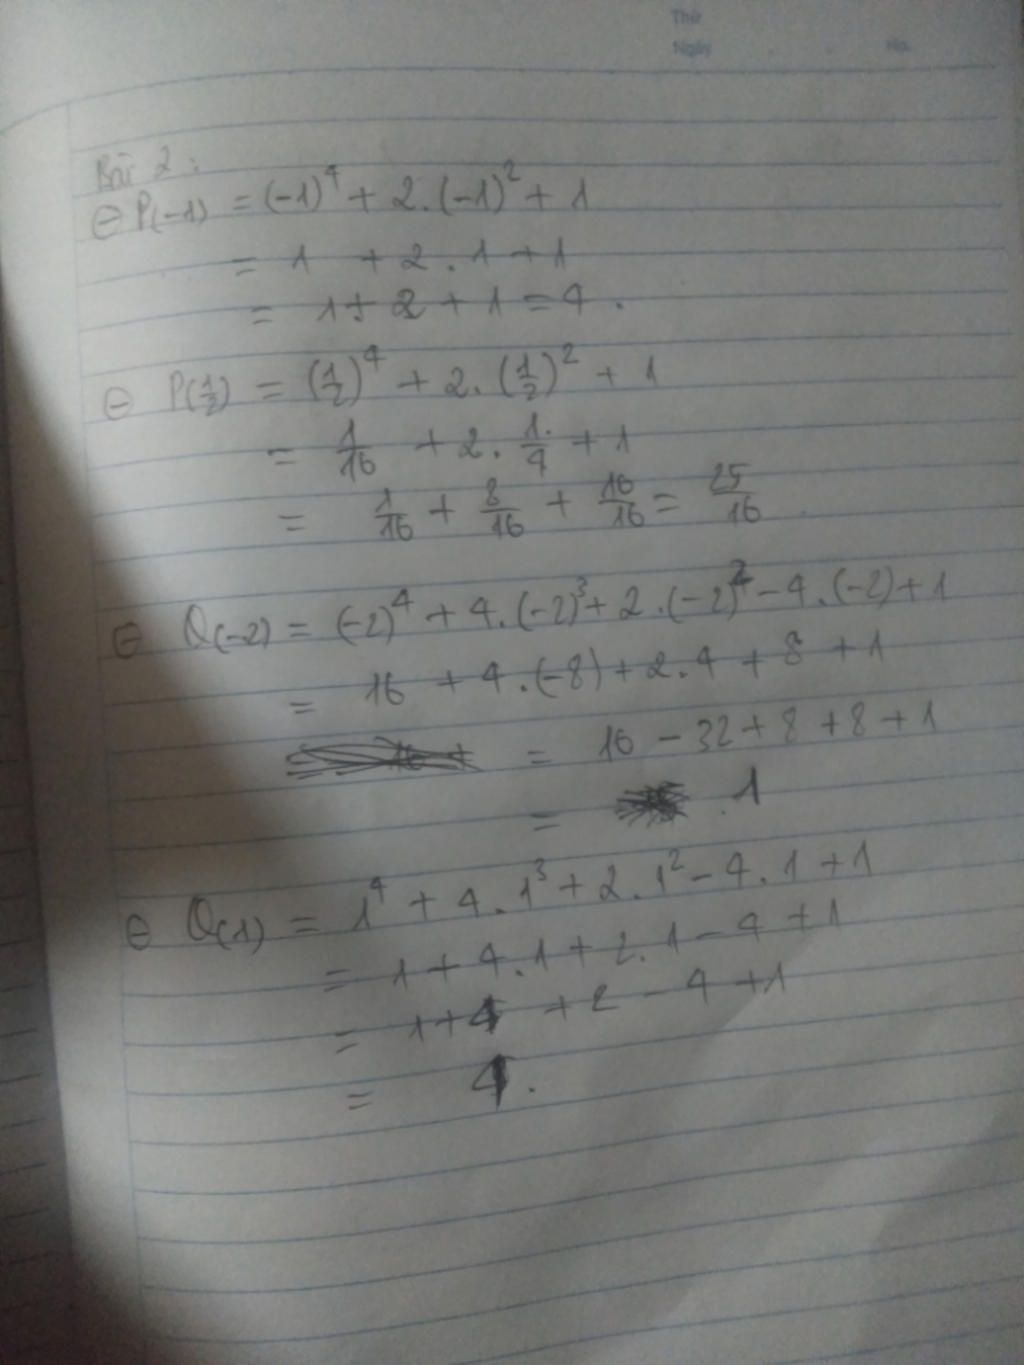 Thứ
Ngày . . No.
Bài 2:
⊖ P(-1) = (-1)⁴ + 2.(-1)² + 1
= 1 + 2 . 1 + 1
= 1 + 2 + 1 = 4 .
⊖ P(1/2) = (1/2)⁴ + 2.(1/2)² + 1
= 1/16 + 2. 1/4 + 1
= 1/16 + 8/16 + 16/16 = 25/16 .
⊖ Q(-2) = (-2)⁴ + 4.(-2)³ + 2.(-2)² - 4.(-2) + 1
= 16 + 4.(-8) + 2.4 + 8 + 1
= 16 - 32 + 8 + 8 + 1
= 1
⊖ Q(1) = 1⁴ + 4.1³ + 2.1² - 4.1 + 1
= 1 + 4.1 + 2.1 - 4 + 1
= 1 + 4 + 2 - 4 + 1
= 4.